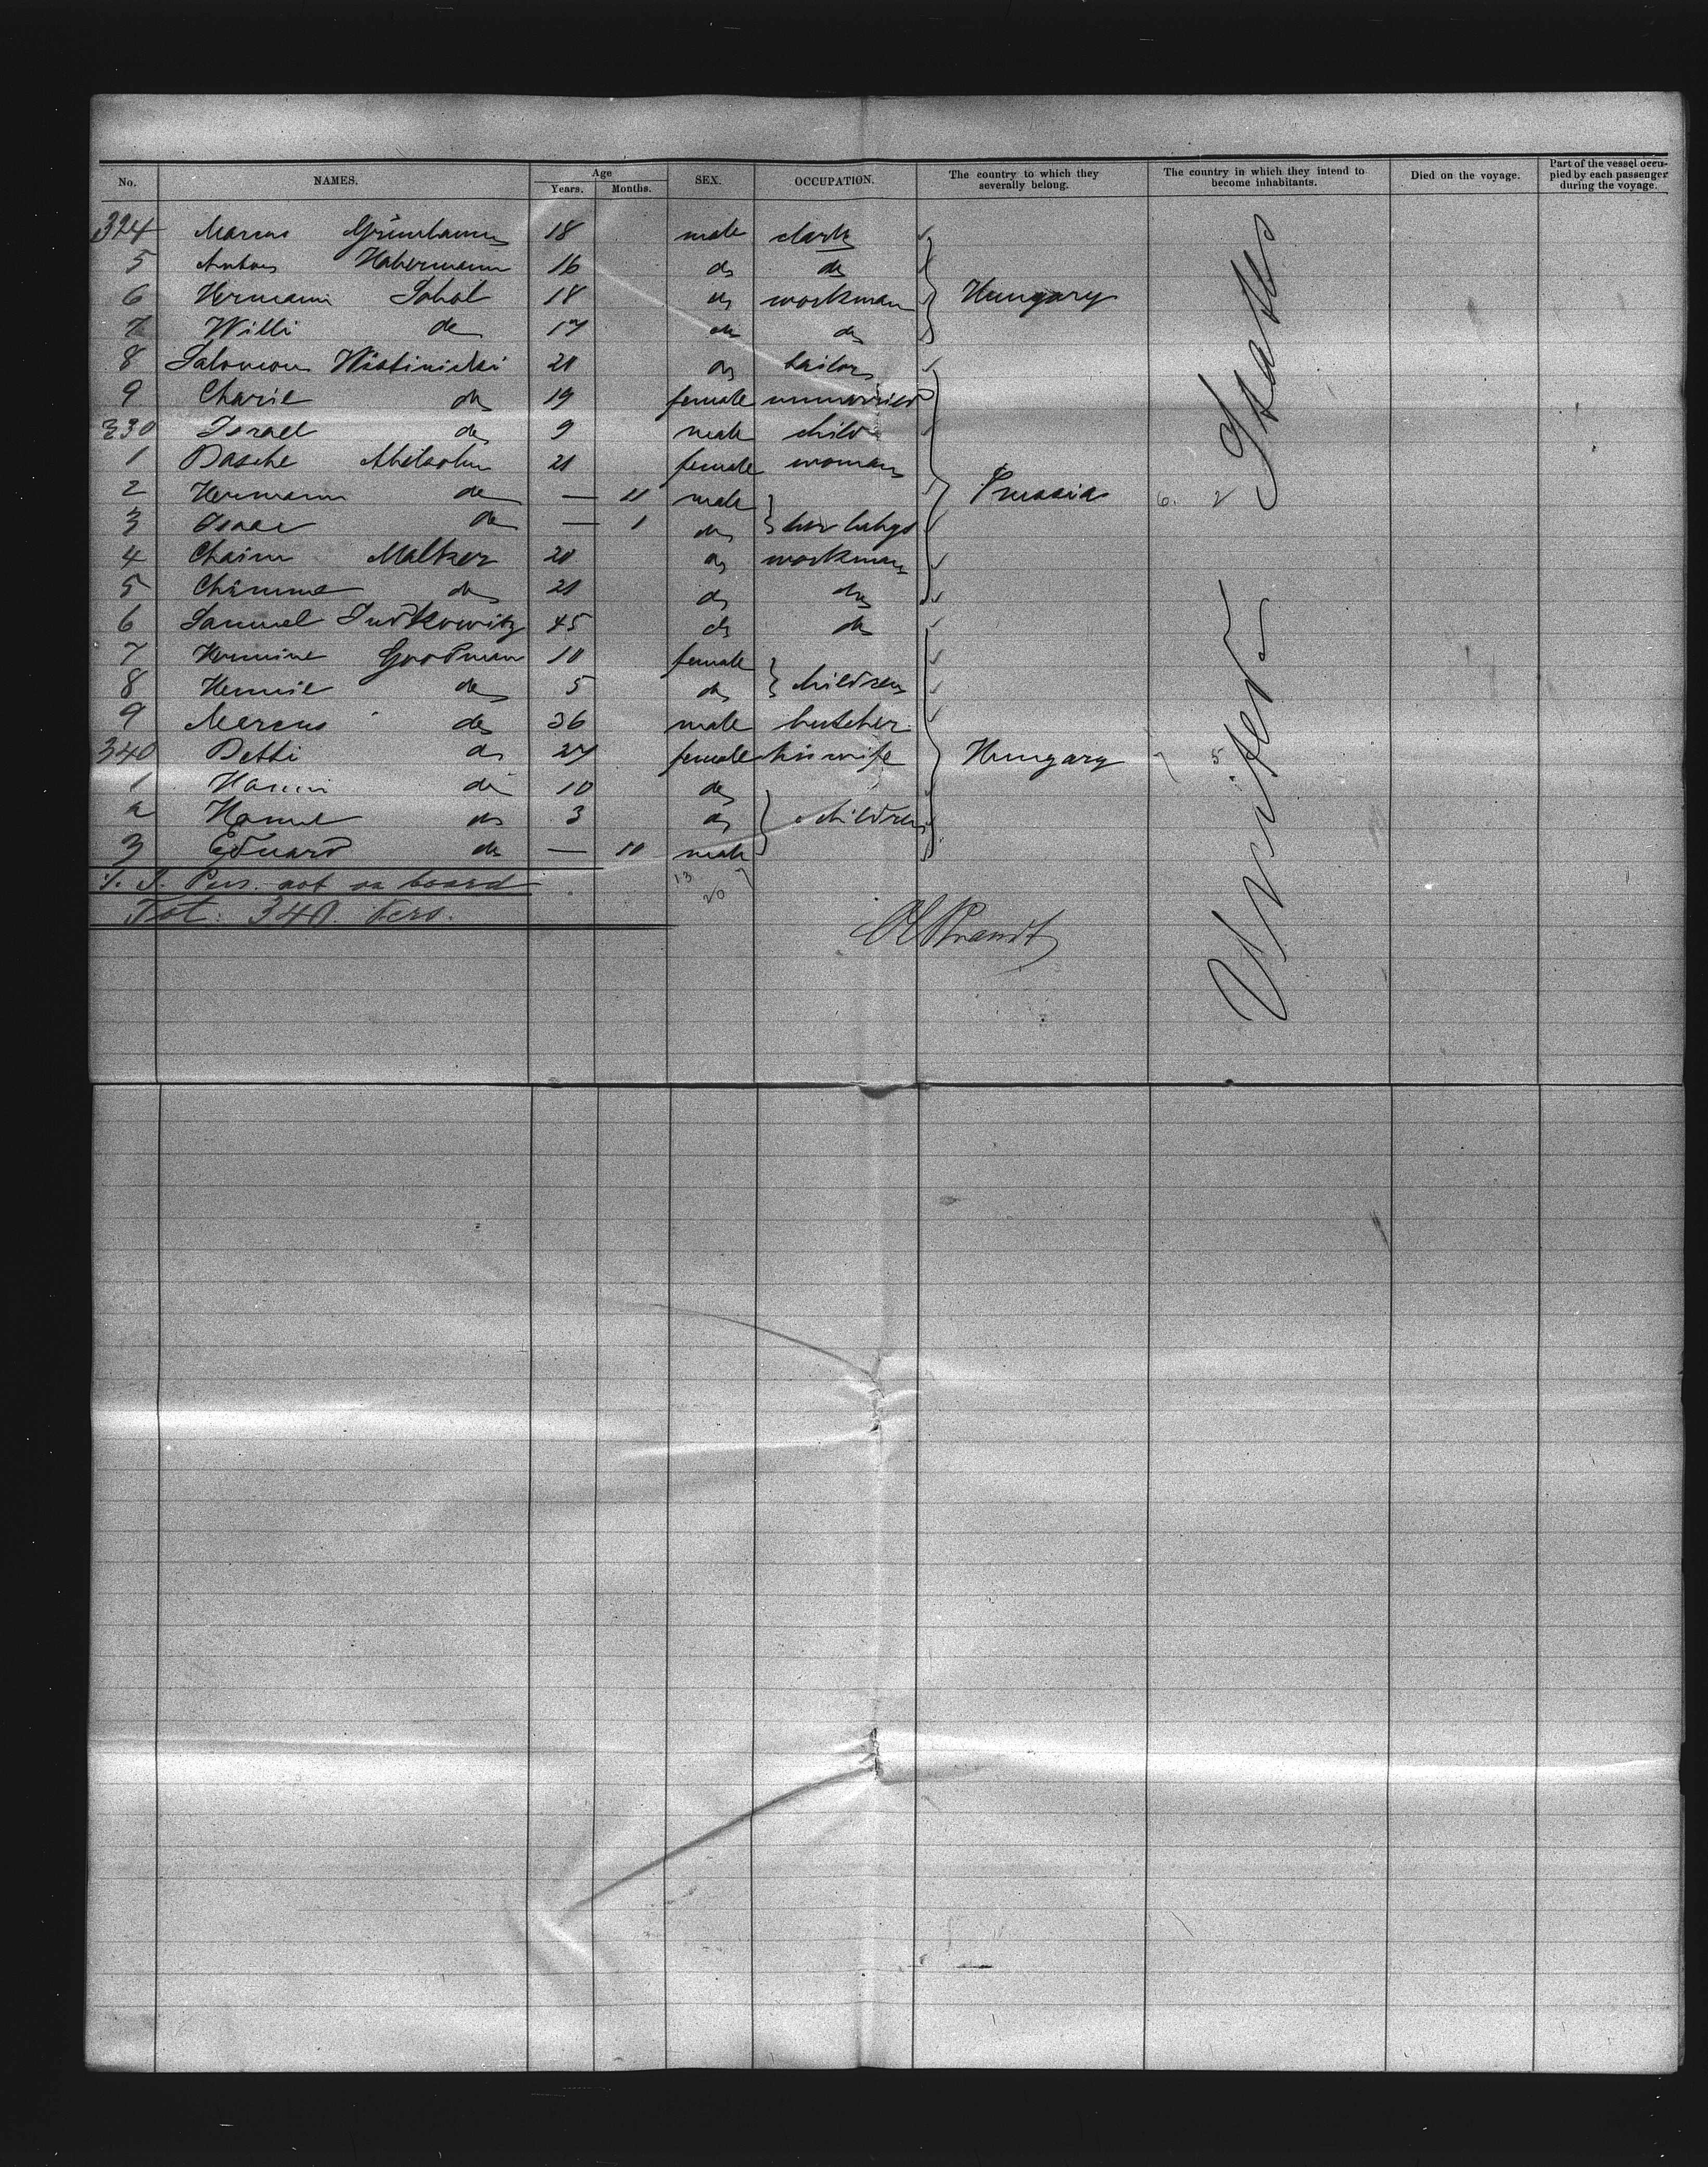 No. NAMES. Age Years. Months. SEX. OCCUPATION. The country to which they severally belong. The country in which they intend to become inhabitants. Died on the voyage. Part of the vessel occupied by each passenger during the voyage.
324 Marcus Grünbaum 18 male clark
5 Anton Habermann 16 do do
6 Hermann Sobol 18 do workman Hungary
7 Willi do 17 do do
8 Salomon 21 do tailor
9 Charie do 19 female unmarried
330 Israel do 9 male child
1 Dasche Abelsohn 21 female woman
2 Hermann do — 11 male Prussia 6. 2
3 Isaac do — 1 do her babys
4 Chaim Maltzer 20 do workman
5 do 21 do do
6 Samuel Judkowitz 45 do do
7 Hermine Goodman 10 female
8 Hennie do 5 do children
9 Marcus do 36 male butcher
340 Betti do 27 female his wife Hungary 7 5
1 Hanni do 10 do
2 do 3 do children
3 Eduard do — 10 male
Pers. not on board
Tot: 340. Pers.
13 7
20
Brandt
United States